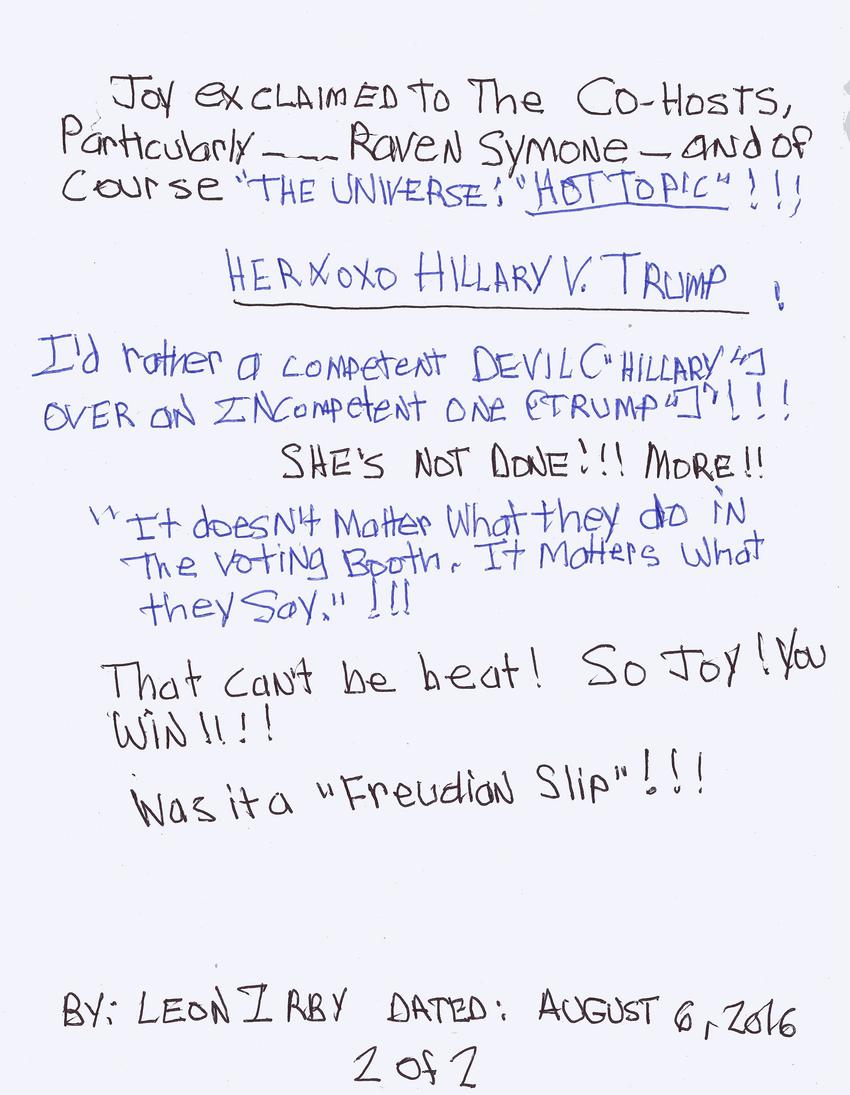 Joy exCLAIMED To The Co-HosTs,
Particularly ____ Raven Symone — and of
Course "THE UNIVERSE: "HOT TOPIC" !!!
HERXOXO HILLARY V. TRUMP !
I'd rather a competent DEVIL ["HILLARY"]
OVER an INCompetent one ["TRUMP"]"!!!
SHE'S NOT DONE!!! MORE!!
"It doesN't Matter What they do iN
The VotiNg Booth. It Matters what
they Say." !!!
That caN't be beat! So Joy! You
WiN!!!!
Was it a "Freudian Slip"!!!
BY: LEON IRBY DATED: AUGUST 6, 2016
2 of 2